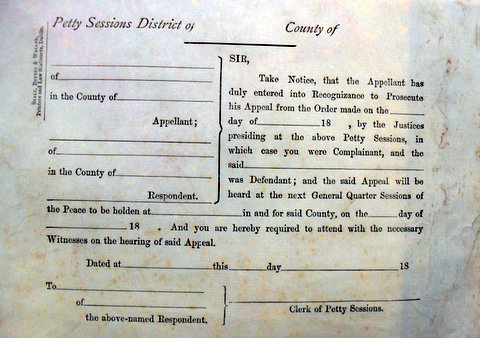 Petty Sessions District of County of
of
in the County of
Appellant;
of
in the County of
Respondent.
SIR,
Take Notice, that the Appellant has
duly entered into Recognizance to Prosecute
his Appeal from the Order made on the
day of 18 , by the Justices
presiding at the above Petty Sessions, in
which case you were Complainant, and the
said
was Defendant; and the said Appeal will be
heard at the next General Quarter Sessions of
the Peace to be holden at in and for said County, on the day of
18 . And you are hereby required to attend with the necessary
Witnesses on the hearing of said Appeal.
Dated at this day 18
To
of
the above-named Respondent.
Clerk of Petty Sessions.
Printers and Law Stationers, Dublin.